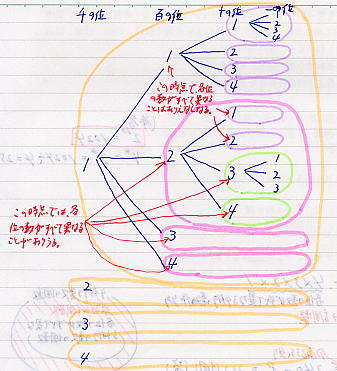 千の位 百の位 十の位 一の位
1
2
3
4
1
2
3
4
この時点で、各位
の数がすべて異なる
ことはありえなくなる。
1
1
2
2
3
1
2
3
4
この時点では、各
位の数がすべて異なる
ことがありうる。
3
4
2
3
4